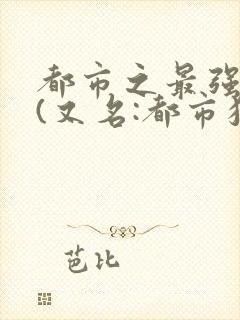 都市之最强
(又名:都市
芭比